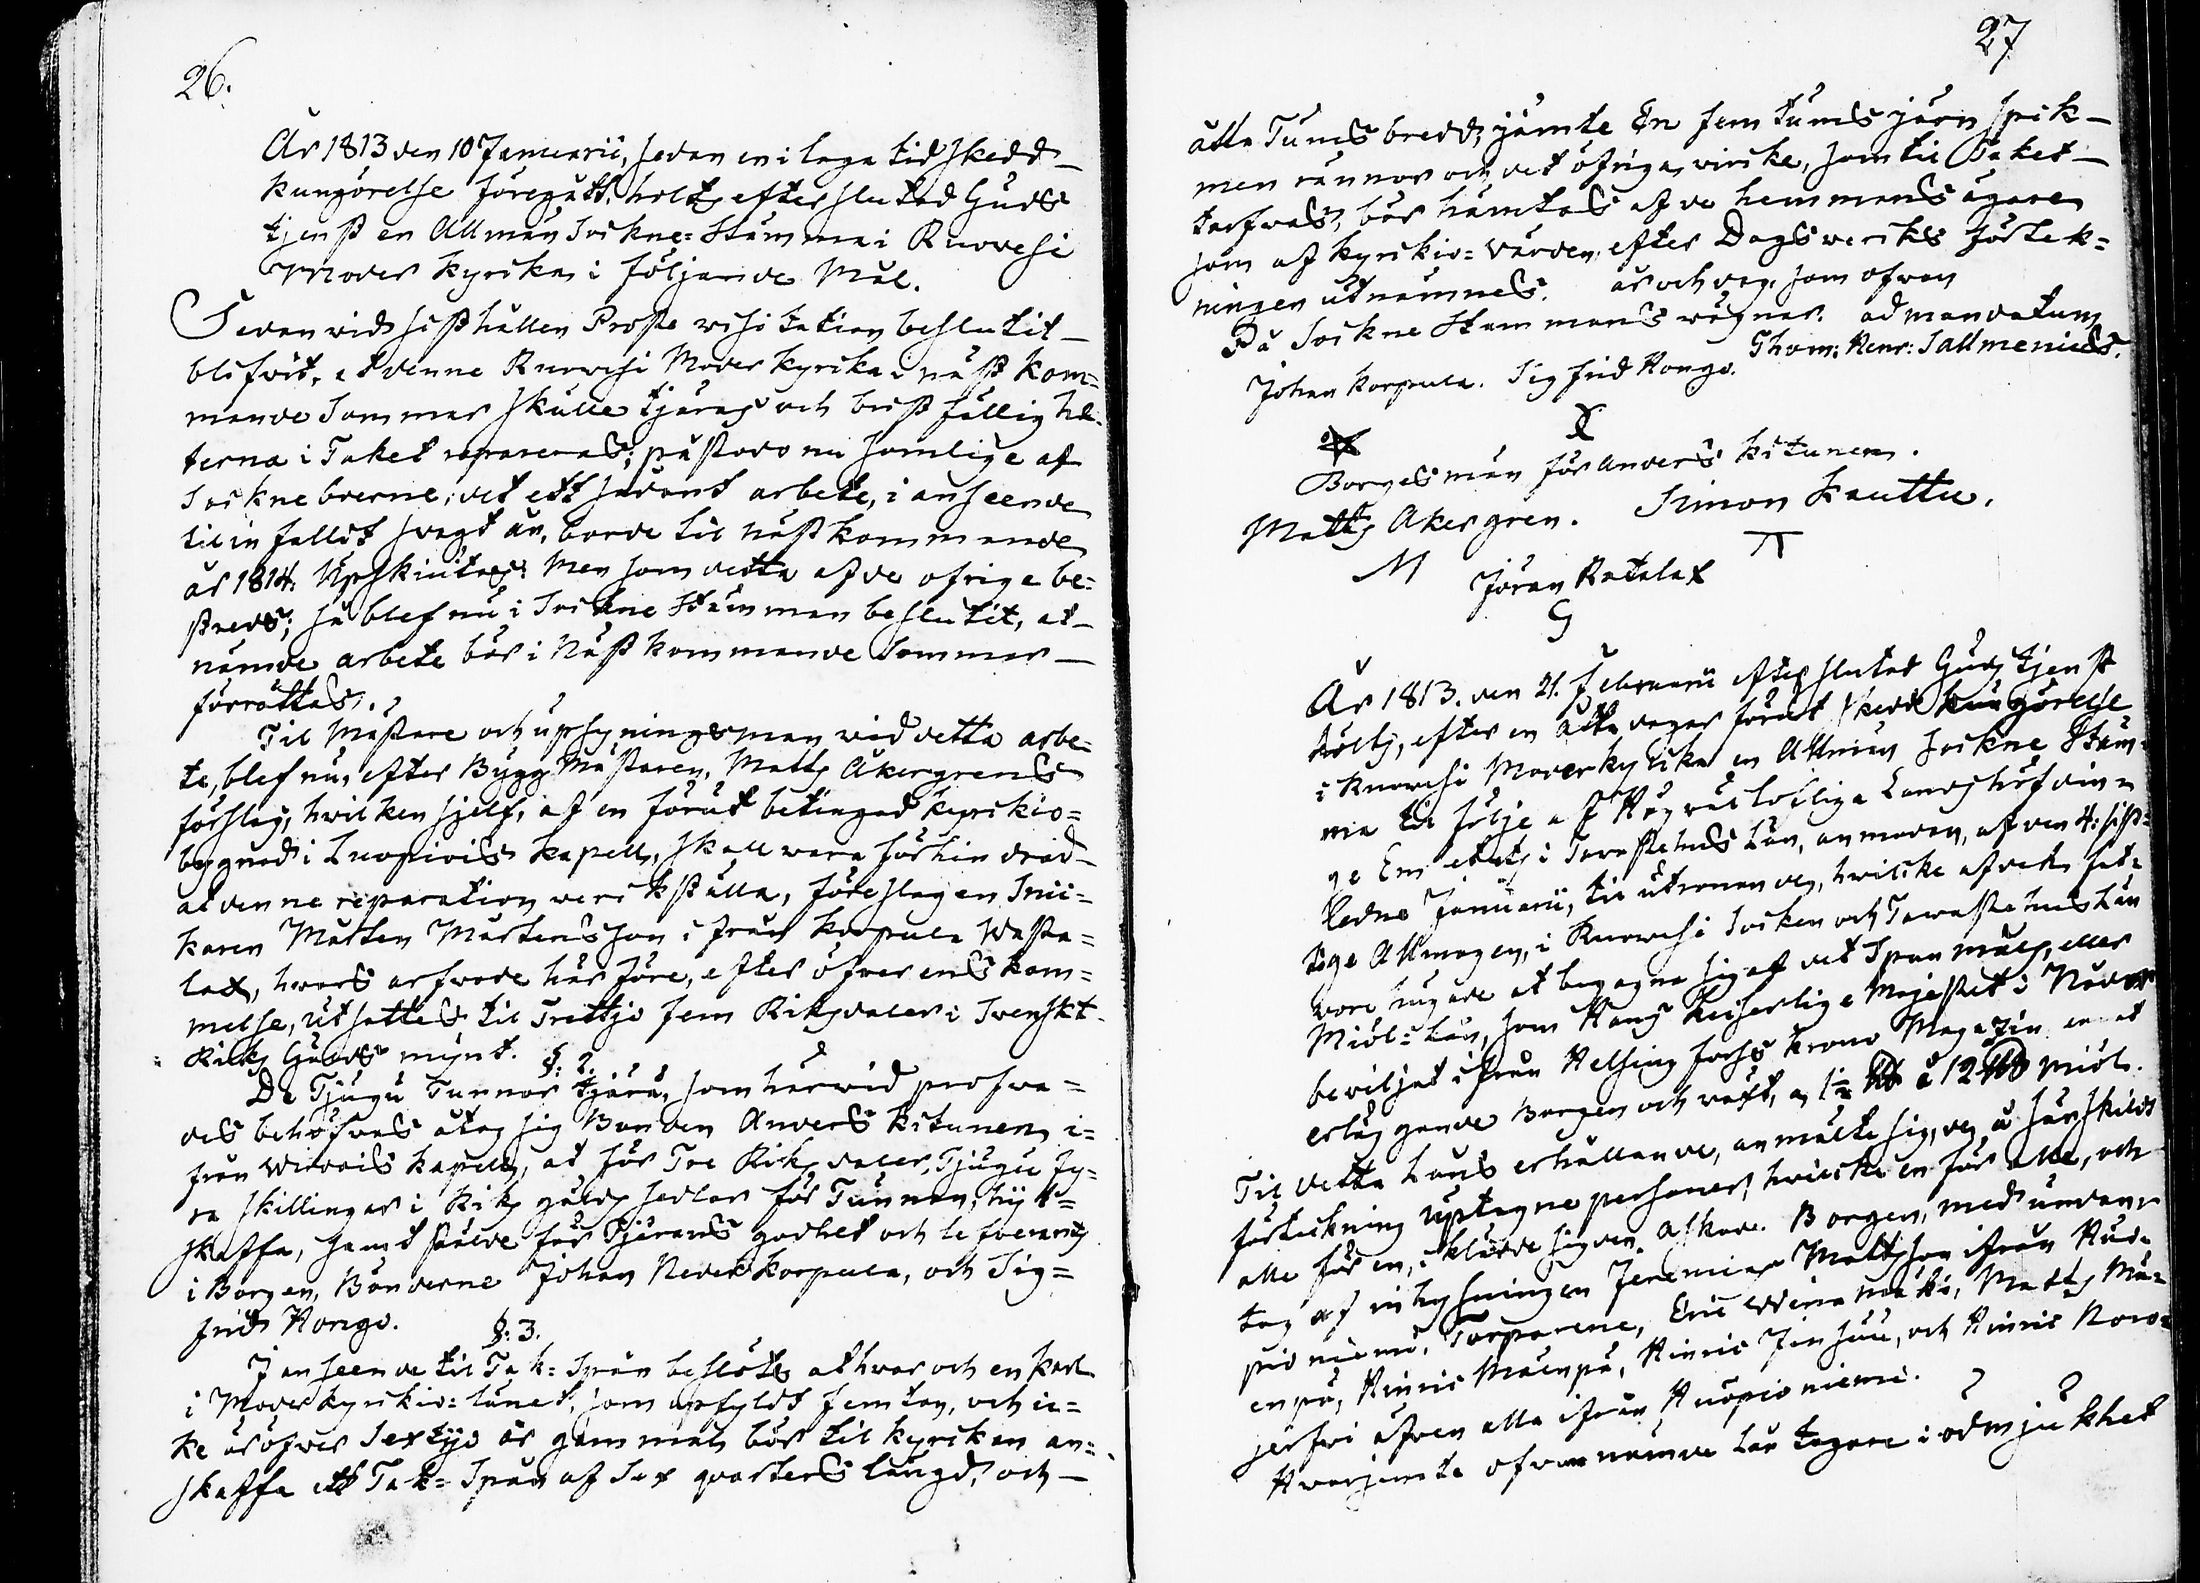 26.
År 1813 den 10 Januarii, sedan en i laga tid skedd
kungörelse föregått, holts efter slutad Guds
tjenst en Allmän Sockne=Stämma i Ruovesi
Moder kyrka i följande Mål.
Sedan wid sist hållen Proste wisitation beslutit
blifwit, at denne Ruovesi Moder kyrka i näst kom=
mande Sommar skulle tjäras och bristfällighe-
terna i Taket repareras; påstodo nu somlige af
Sockneboerne, det ett sådant arbete, i anseende
til infallit swagt år, borde til nästkommande
år 1814. Upskiutas: Men som detta af de öfriga be=
streds; så blef nu i Sockne Stämman beslutit, at
nämde arbete bör i Nästkommande Sommar
förrättas.
Til Mästare och upsyningsman wid detta arbe-
te, blef nu, efter Byggmästaren, Matts Åkergrens
förslag, hwilken sjelf, af en förut betingad kyrkio=
bygnad i Luopiois kapell, skall wara förhindrad
at denne reparation werkställa, föreslagen Snic=
karen Mårten Mårtensson ifrån Korpula Wasta=
lax, hwars arfwode här före, efter öfwerenskom=
melse, utsattes til Trettjo fem Riksdaler i Svenskt
Riks Gälds mynt.
§: 2.
De Tjugu Tunnor tjära, som härwid profwa=
des behöfwas åtog sig Bonden Anders Kitunen i=
från Wirdois kapell, at för Tre Riksdaler, Tjugu fy=
ra skillingar i Riks gälds sedlar för Tunnan, hijt=
skaffa, samt stälde för Tjärans godhet och lefverants
i Borgen, Bönderne Johan Neder Korpula, och Sig=
frid Hongo.
§: 3.
I anseende til Tak=Spån beslöts at hwar och en karl
i Moderkyrkio=länet, som upfyldt femton, och ic=
ke är öfwer Sextijo år gammal bör til kyrkan an=
skaffa ett Tak=Spån af Sex qvarters längd, och
27
åtta Tums bredd, jämte En fem tums järn spik
men rännor och det öfriga wirke, som til Taket
tarfwas, bör hämtas af de hemmans ägare
som af kyrkio=Värden efter Dagswerks förtek=
ningen utnämnes. år och dag som ofwan
På Sockne Stämmans wägnar. ad mandatum
Thom: Henr: Sallmenius.
Johan Korpula. Sigfrid Hongo.
X
Borgesmän för Anders Kitunen.
Matts Åkergren. Simon Kauttu.
M
Jöran Ratalax
G
År 1813. den 21. Februarii efter slutad Guds tjenst
hölts, efter en åtta dagar förut skedd kungörelse
i Ruovesi Moderkyrka en Allmän Sockne Stäm=
ma til följe af Högwälloflige Landshöfdin=
ge Embetets i Tavastehus Län, anmodan, af den 4: sist=
ledne Januarii, til utrönande, hwilke af dett fat=
tige Allmogen, i Ruovesi Socken och Tawastehus Län
wore hugade at begagna sig af det Spanmåls, eller
Miöl=Lån, som Hans Keiserlige Majestet i Nåder
beviljat ifrån Helsingfors krono Magazin emot
erläggande Borgen och ränt, a 1½ ℔ à 12 ℔ miöl.
Til detta Låns erhållande, anmälte sig, de å särskild
förtekning uptagne personer, hwilka en för alla, och
alla för en, iklädde sig den äskade Borgen, med undan=
tag af inhysningen Jeremias Mattsson ifrån Huo=
pioniemi, Torparene, Eric Wieramäki, Matts Mä=
enpä, Hinric Mäenpä, Hinric Jinsuu, och Hinric Koro=
jerfwi äfven alla ifrån Huopioniemi.
Hwarjemte ofwannämde Låntagare i ödmjukhet